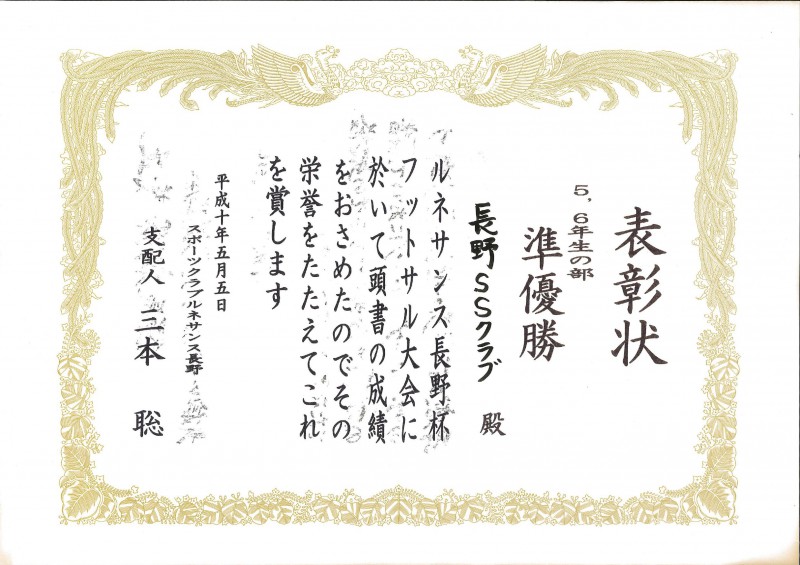 表彰状
準優勝
5,6年生の部
長野SSクラブ 殿
ルネサンス長野杯
フットサル大会に
於いて頭書の成績
をおさめたのでその
栄誉をたたえてこれ
を賞します
平成十年五月五日
スポーツクラブルネサンス長野
支配人 三本 聡